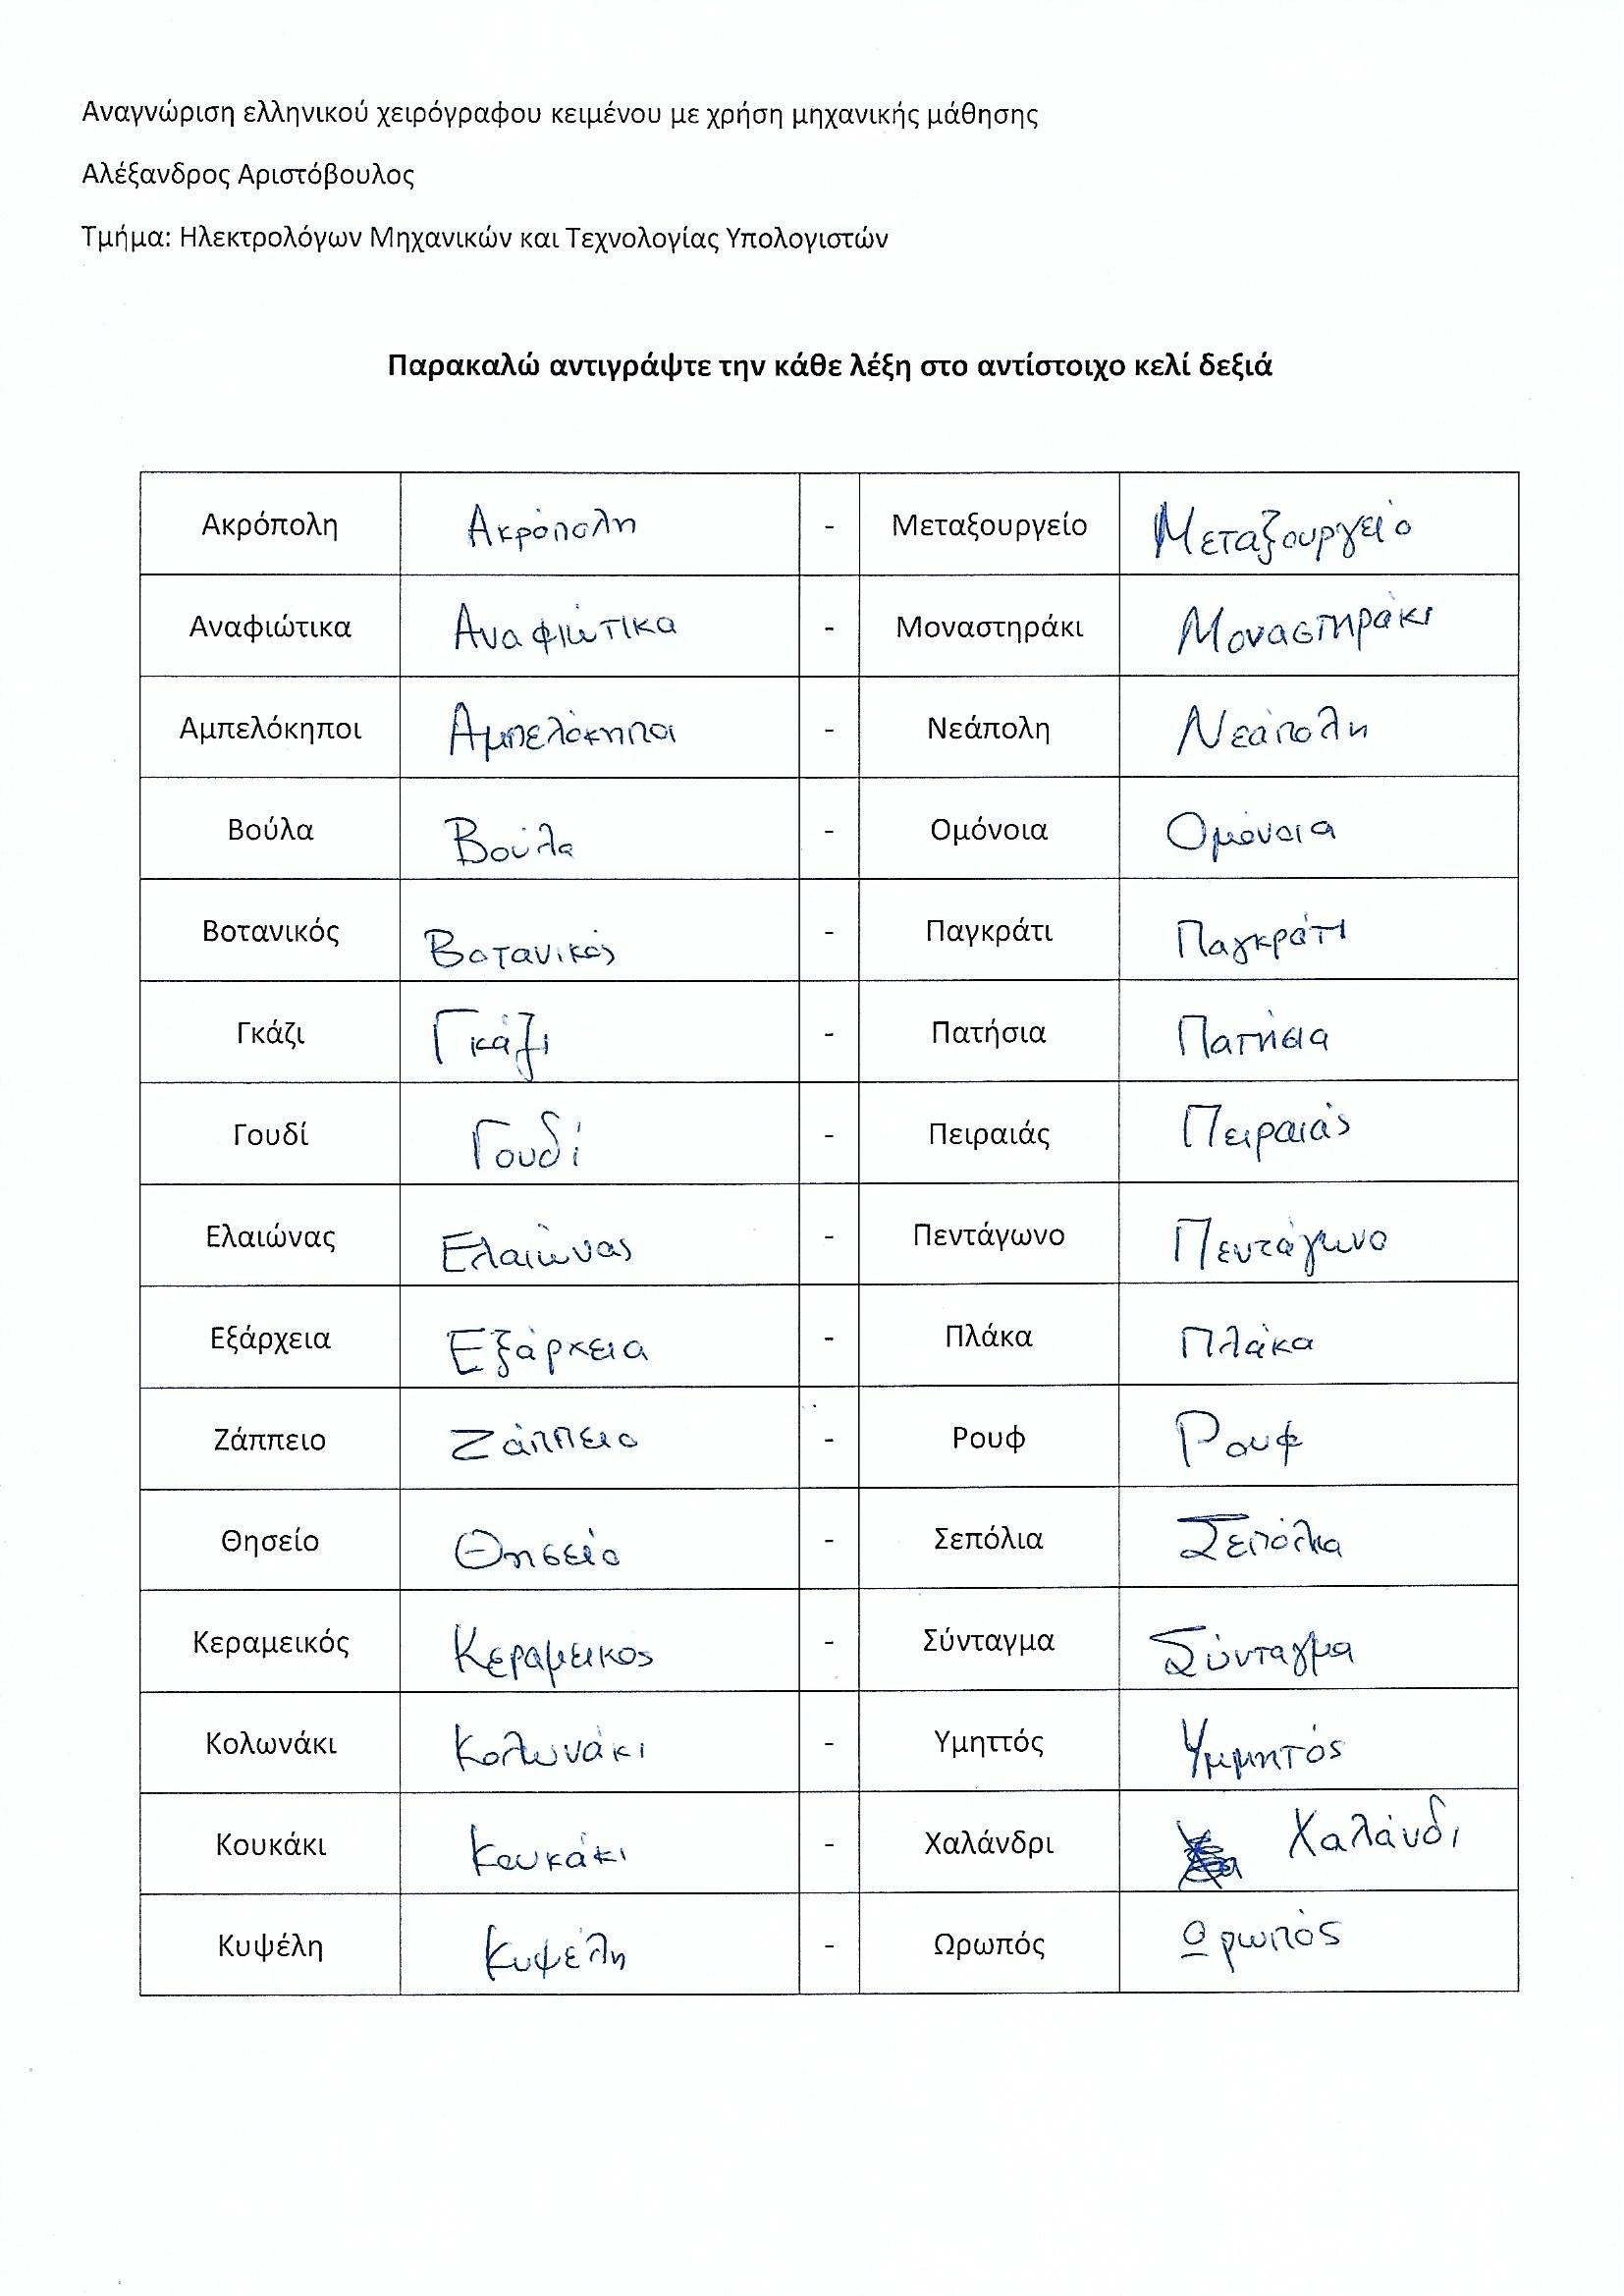 Αναγνώριση ελληνικού χειρόγραφου κειμένου με χρήση μηχανικής μάθησης
Αλέξανδρος Αριστόβουλος
Τμήμα: Ηλεκτρολόγων Μηχανικών και Τεχνολογίας Υπολογιστών
Παρακαλώ αντιγράψτε την κάθε λέξη στο αντίστοιχο κελί δεξιά
Ακρόπολη Ακρόπολη - Μεταξουργείο Μεταξουργείο
Αναφιώτικα Αναφιώτικα - Μοναστηράκι Μοναστηράκι
Αμπελόκηποι Αμπελόκηποι - Νεάπολη Νεάπολη
Βούλα Βούλα - Ομόνοια Ομόνοια
Βοτανικός Βοτανικός - Παγκράτι Παγκράτι
Γκάζι Γκάζι - Πατήσια Πατήσια
Γουδί Γουδί - Πειραιάς Πειραιάς
Ελαιώνας Ελαιώνας - Πεντάγωνο Πεντάγωνο
Εξάρχεια Εξάρχεια - Πλάκα Πλάκα
Ζάππειο Ζάππειο - Ρουφ Ρουφ
Θησείο Θησείο - Σεπόλια Σεπόλια
Κεραμεικός Κεραμεικος - Σύνταγμα Σύνταγμα
Κολωνάκι Κολωνάκι - Υμηττός Υμμητός
Κουκάκι Κουκάκι - Χαλάνδρι Χαλάνδι
Κυψέλη Κυψέλη - Ωρωπός Ωρωπός